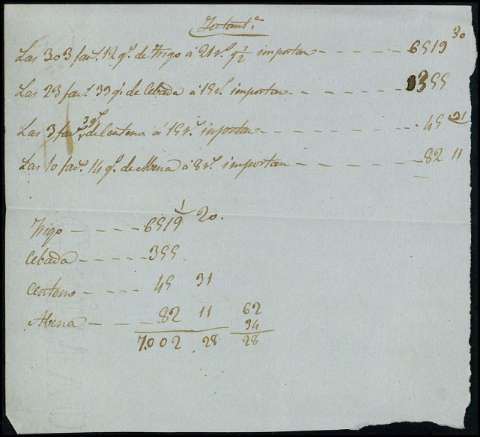 Las 303 fan.s 12 q.s de Trigo á 21 r.s q 1/2 importan — 6519 30
Las 23 fan.s 33 q.s de Cebada á 15 r.s importan — 355
Las 3 fan.s de Centeno á 15 r.s importan — 45 31
Las 10 fan.s 14 q.s de Abena á 8 r.s importan — 82 11
1
Trigo — 6519 20.
Cebada — 355
Centeno — 45 31
Abena — 82 11 62
34
7.002 28 28